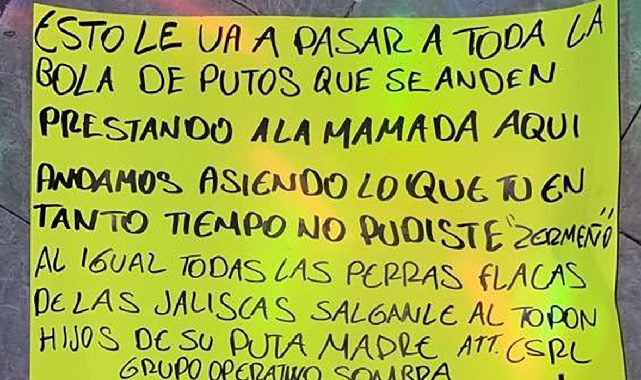 ESTO LE VA A PASAR A TODA LA
BOLA DE PUTOS QUE SE ANDEN
PRESTANDO A LA MAMADA AQUI
ANDAMOS ASIENDO LO QUE TU EN
TANTO TIEMPO NO PUDISTE "ZERMEÑO"
AL IGUAL TODAS LAS PERRAS FLACAS
DE LAS JALISCAS SALGANLE AL TOPON
HIJOS DE SU PUTA MADRE ATT. CSRL
GRUPO OPERATIVO SOMBRA